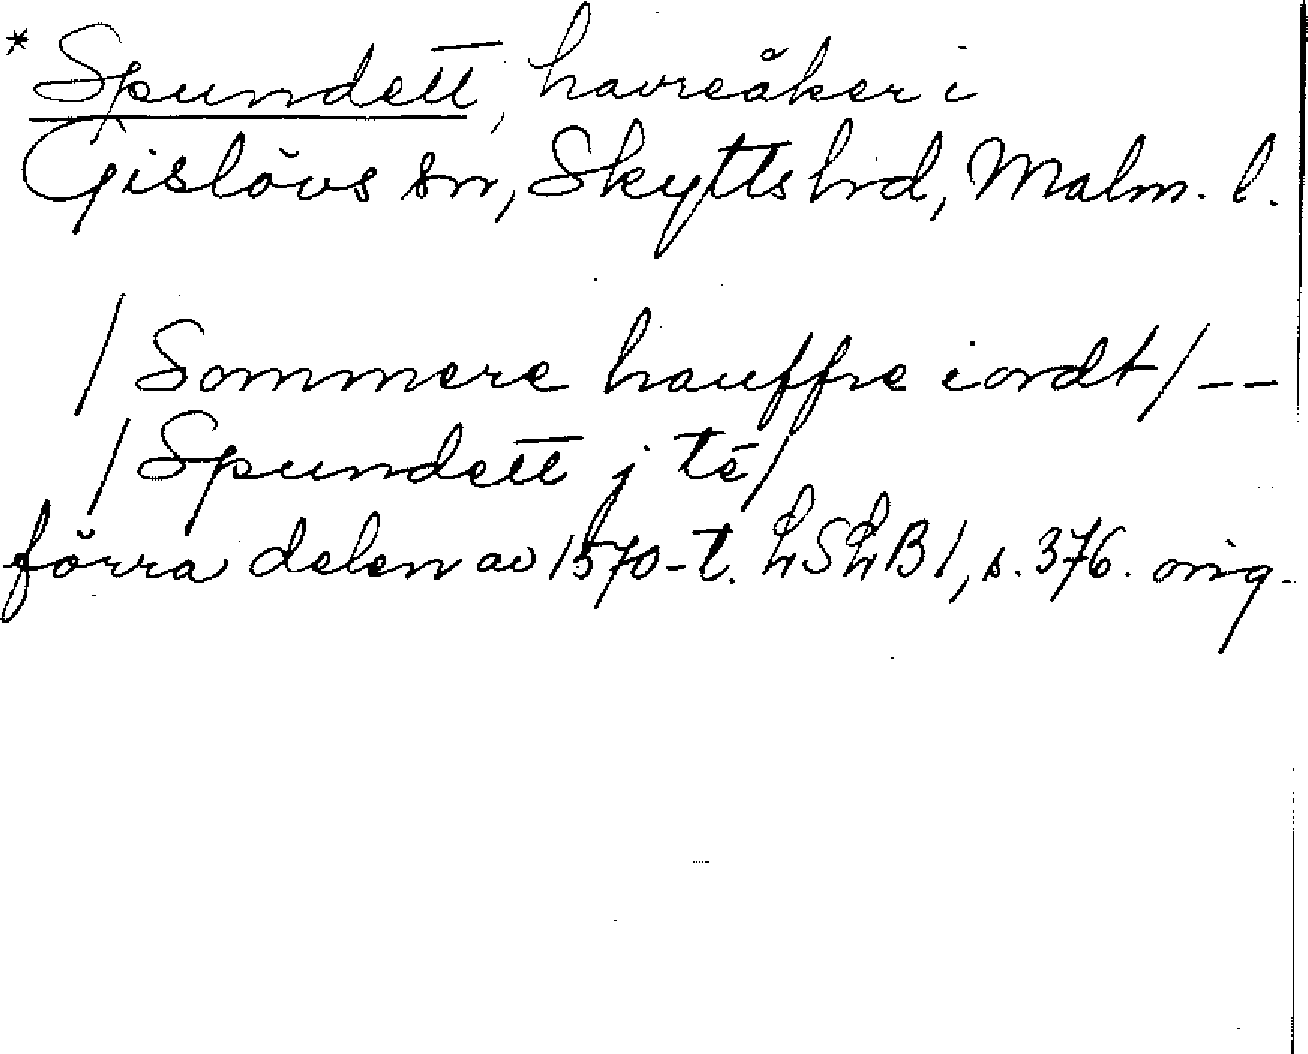 * Spundett, havreåker i
Gislövs sn, Skytts hd, Malm. l.
/Sommere hauffre iordt/ --
/Spundett j té/
förra delen av 1570-t. LSLB1, s. 376. orig.